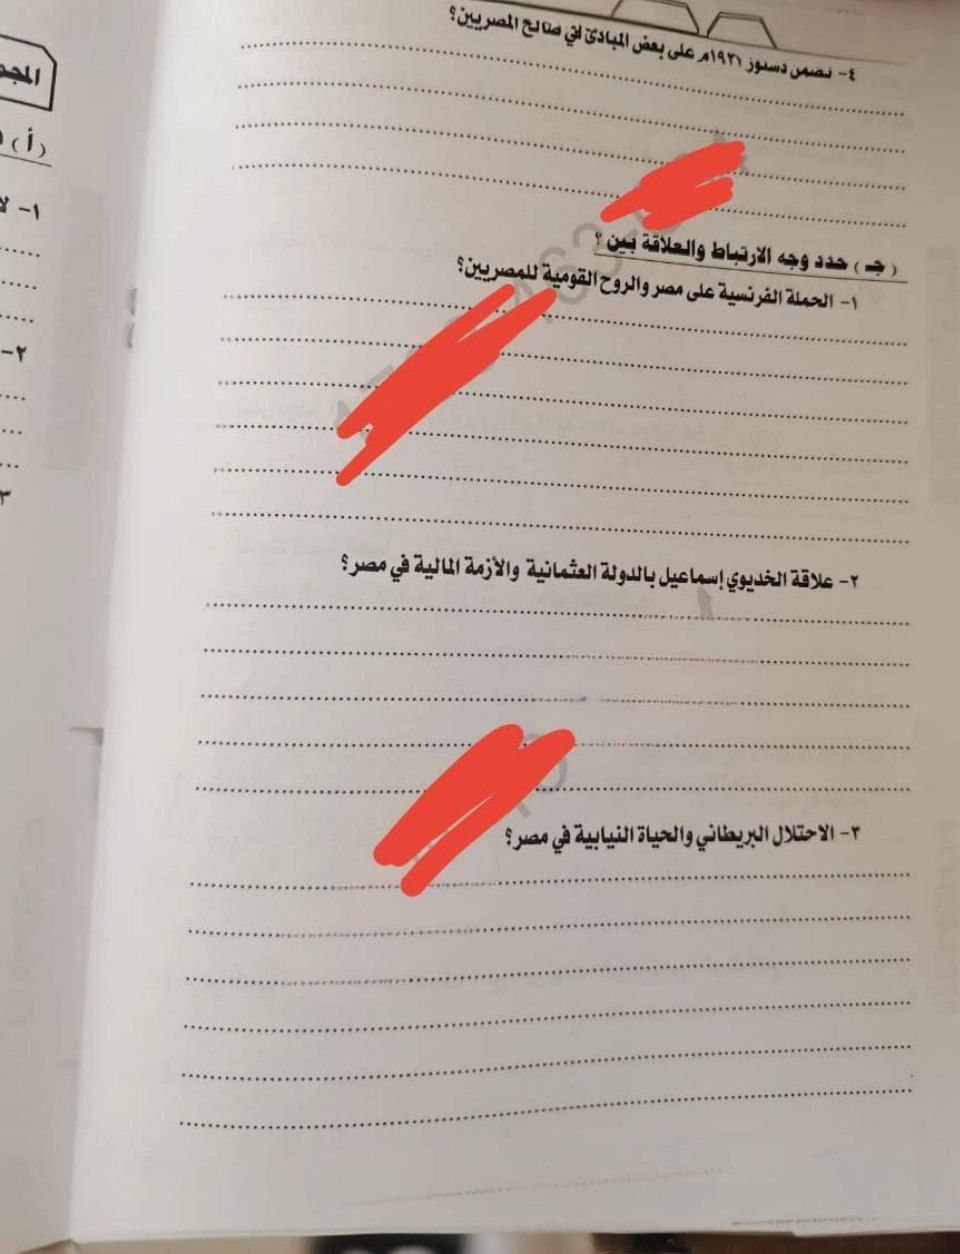 ٤- تضمن دستور ١٩٢٣م على بعض المبادئ في صالح المصريين؟
(جـ) حدد وجه الارتباط والعلاقة بين ؟
١- الحملة الفرنسية على مصر والروح القومية للمصريين؟
٢- علاقة الخديوي إسماعيل بالدولة العثمانية والأزمة المالية في مصر؟
٣- الاحتلال البريطاني والحياة النيابية في مصر؟
(أ)
١-
٢-
٣